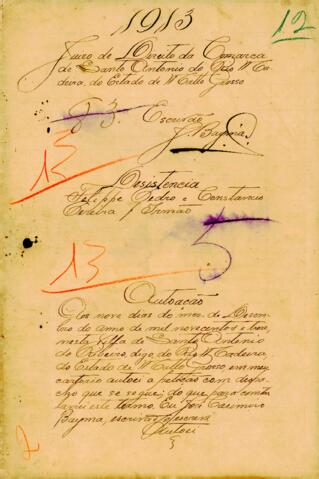 1913
12
Juizo de Direito da Comarca
de Santo Antonio do Rio Ma-
deira, do Estado de Matto Grosso
Escrivão
J. Bayma
13
Desistencia
Felippe Pedro e Constancio
Pereira & Irmão
13
Autoação
Aos nove dias do mes de Dezem-
bro do anno de mil novecentos e treze,
nesta villa de Santo Antonio
do Ribeiro, digo, do Rio Madeira,
do Estado de Matto Grosso, em meu
cartorio autoei a petição com despa-
cho que se segue; do que para constar
lavrei este termo. Eu José Casimiro
Bayma, escrivão, escrevi
Autoei
2